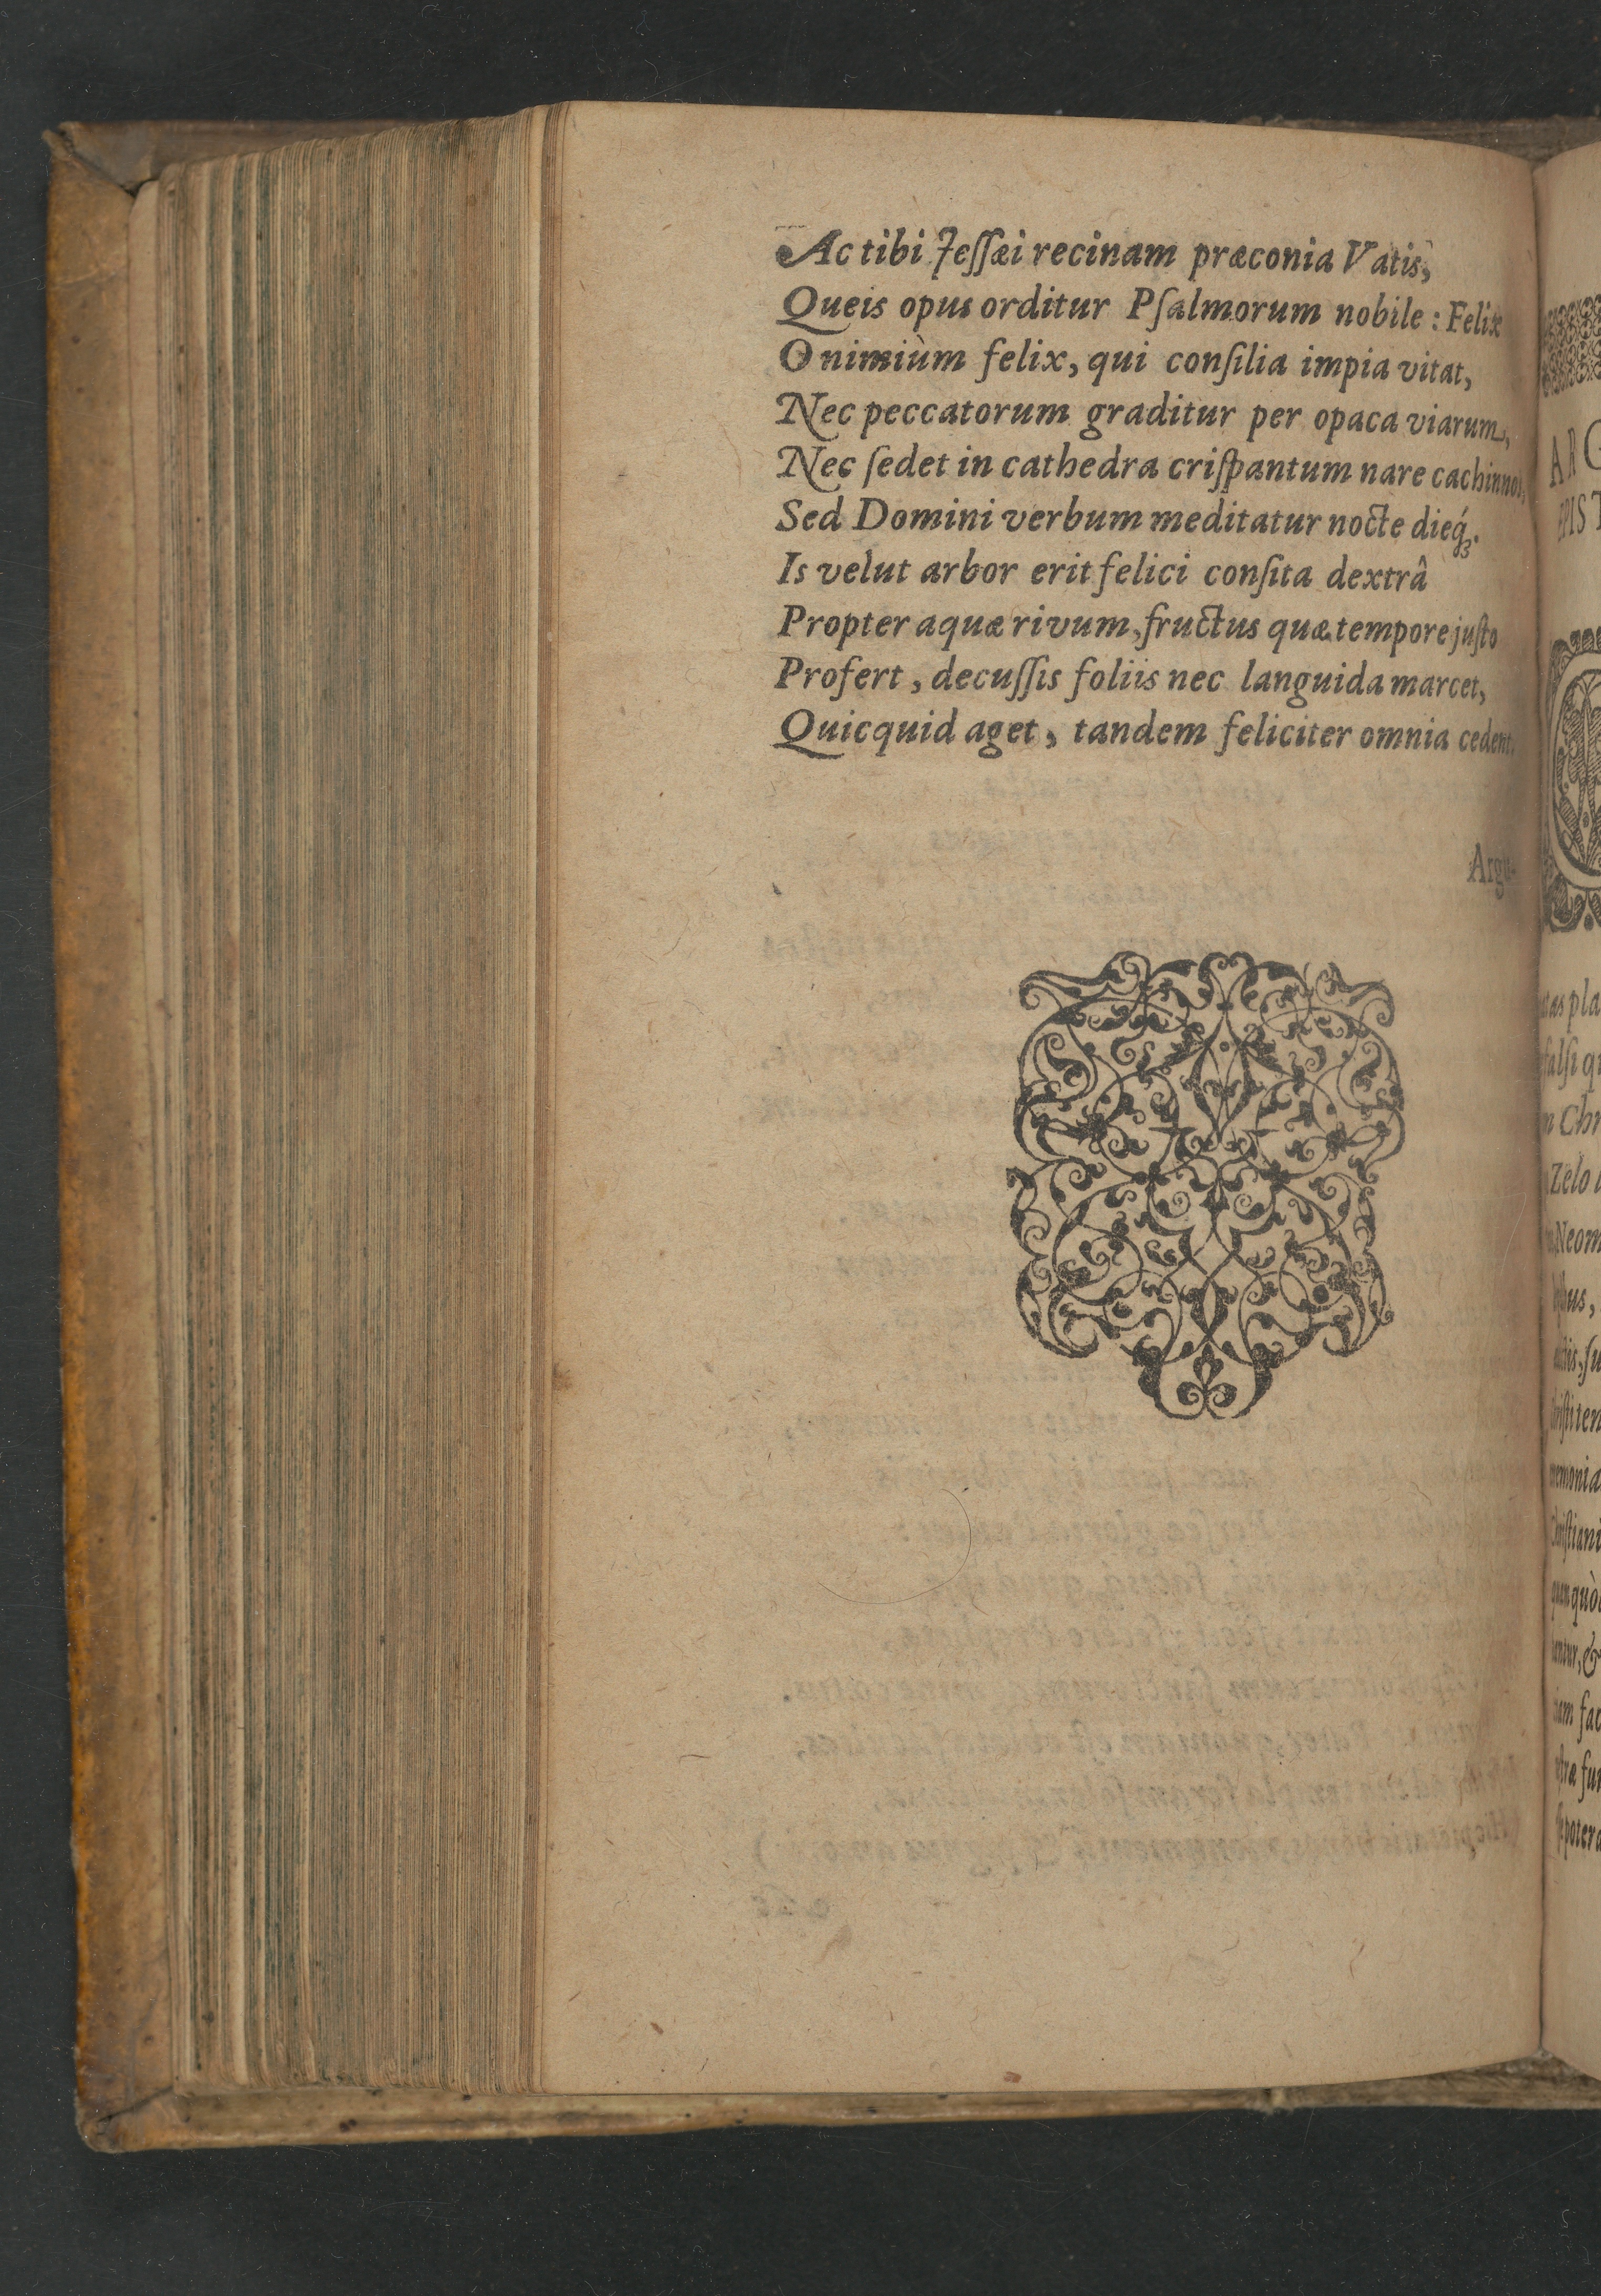 Ac tibi Jeſſæi recinam præconia Vatis,
Queis opus orditur Pſalmorum nobile : Felix
O nimiùm felix, qui conſilia impia vitat,
Nec peccatorum graditur per opaca viarum,
Nec ſedet in cathedra criſpantum nare cachinnos,
Sed Domini verbum meditatur nocte dieq́ꝫ.
Is velut arbor erit felici conſita dextrâ
Propter aquæ rivum, fructus quæ tempore juſto
Profert, decuſſis foliis nec languida marcet,
Quicquid aget, tandem feliciter omnia cedent.
Argu-